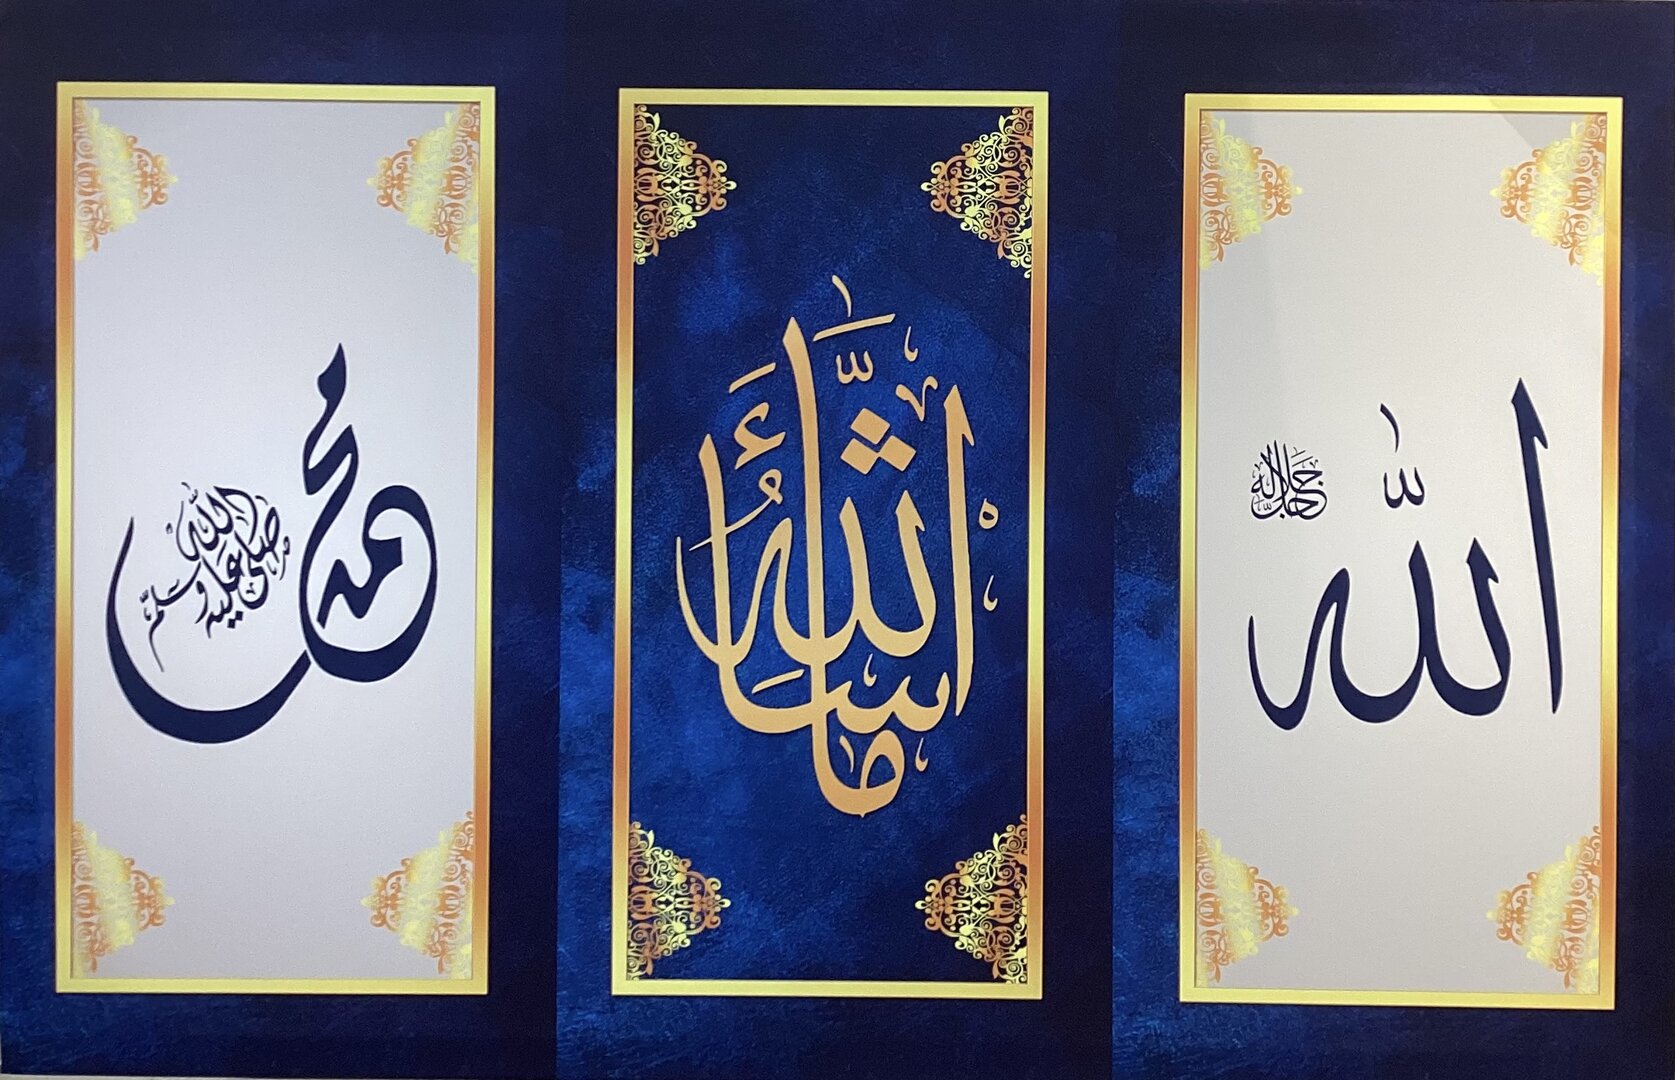 الله
جل جلاله
ما شَاءَ اللَّهُ
محمد
صلى الله عليه وسلم